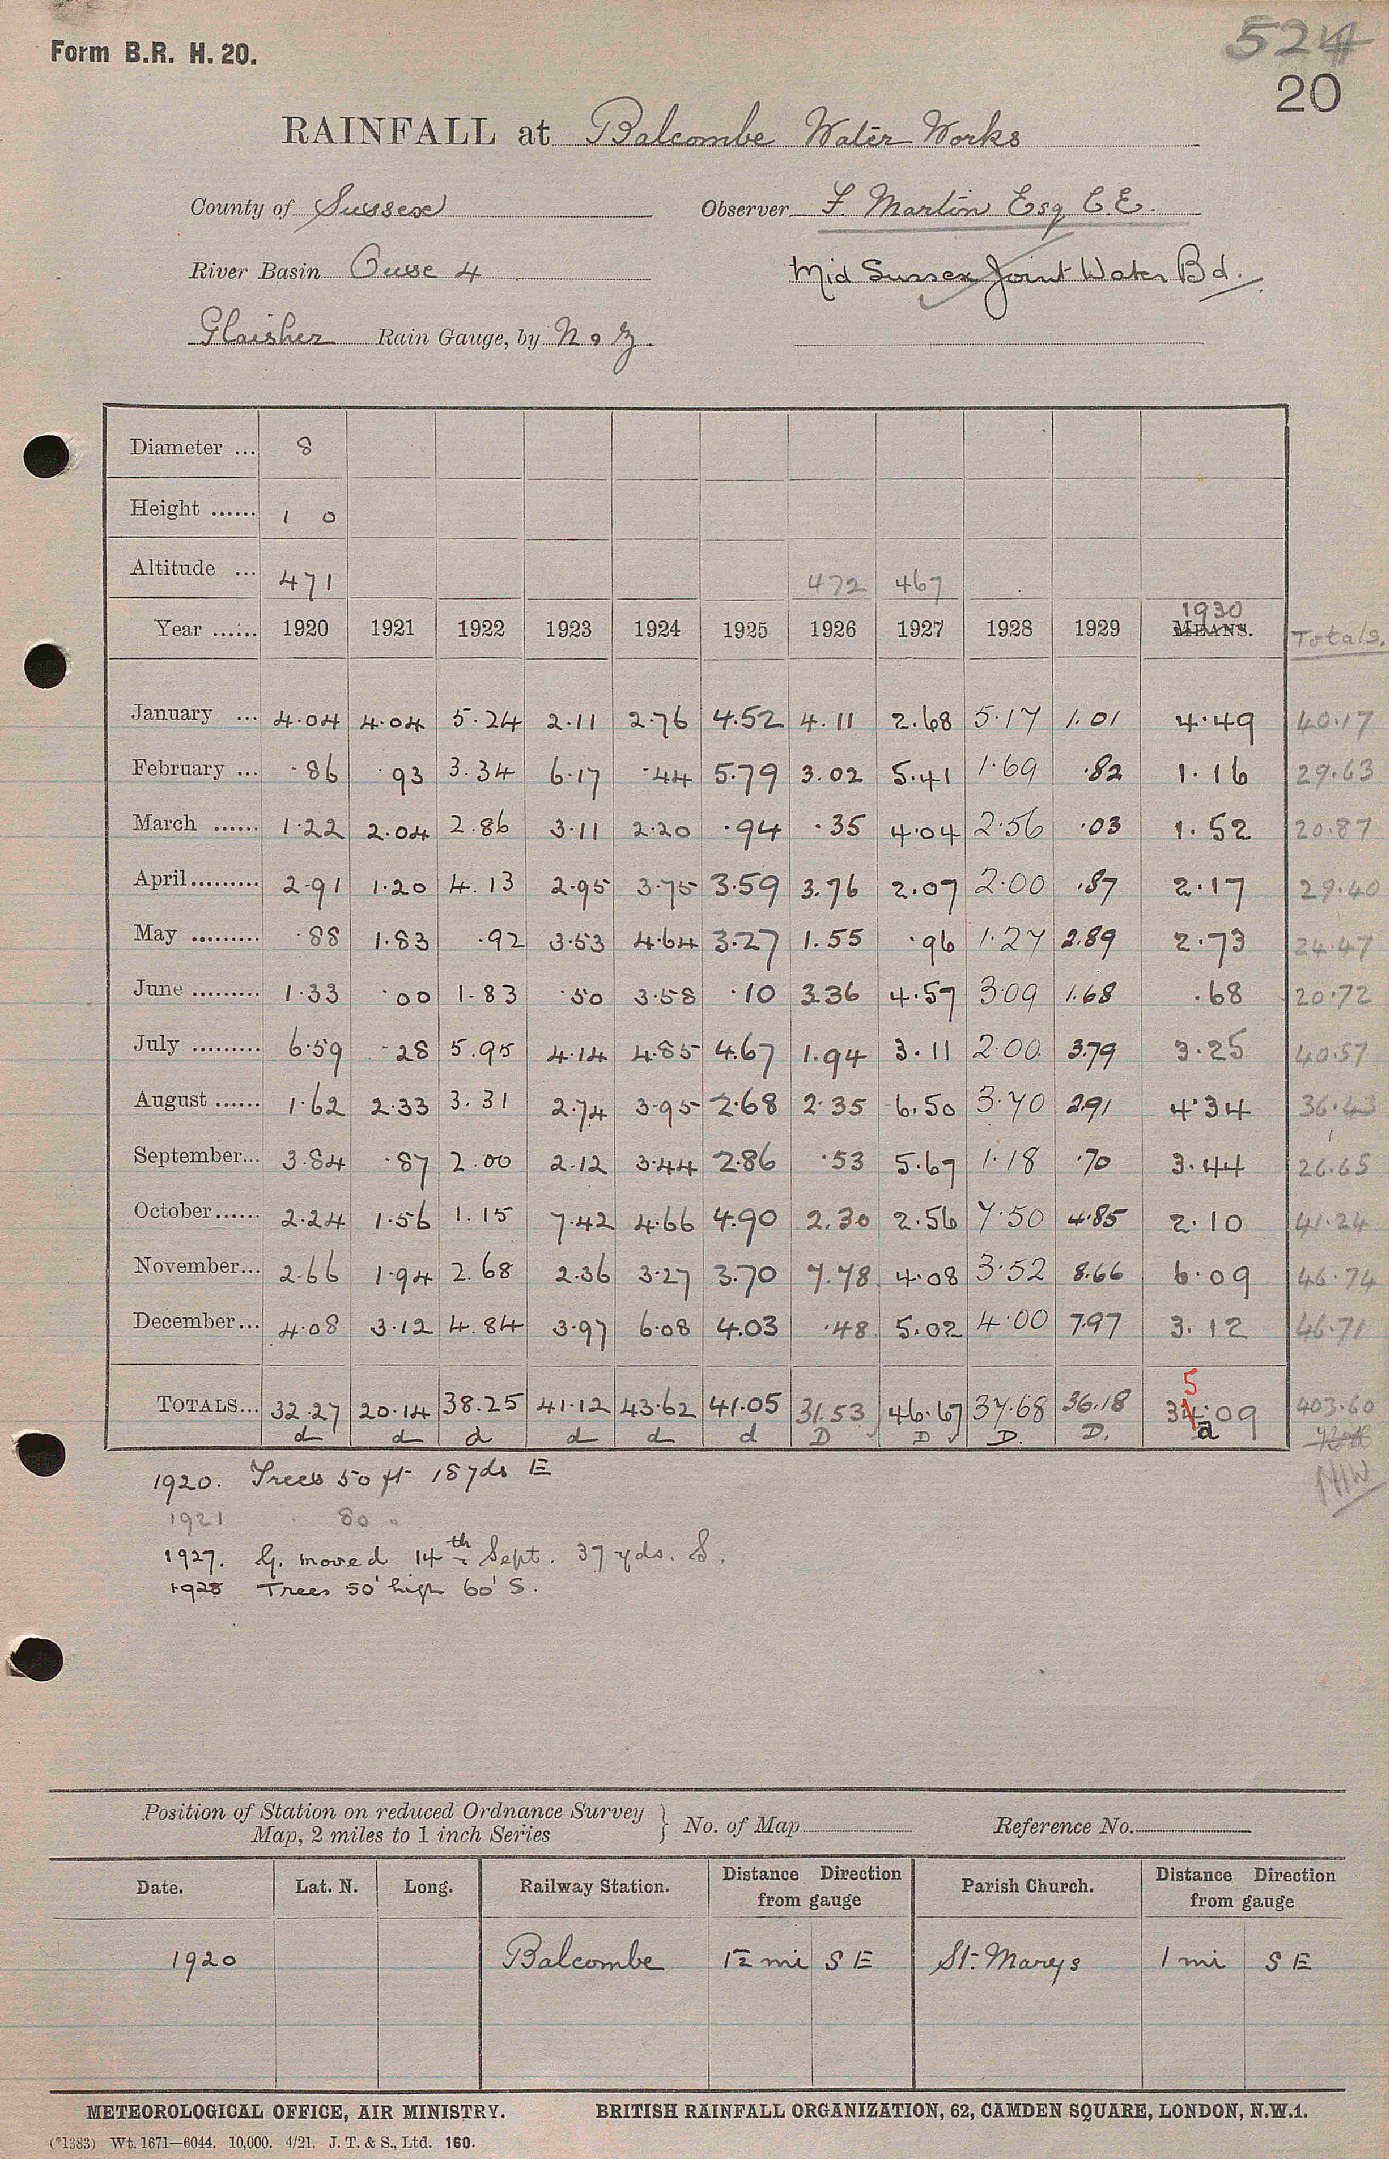 Form B.R. H. 20.
524
20
RAINFALL at Balcombe Water Works
County of Sussex Observer F. Martin Esq C.E.
River Basin Ouse 4 Mid Sussex Joint Water Bd.
Glaisher Rain Gauge, by N & Z.
Diameter ... 8
Height ...... 1 0
Altitude ... 471 472 467
1930
Year ...... 1920 1921 1922 1923 1924 1925 1926 1927 1928 1929 MEANS. Totals.
January ... 4.04 4.04 5.24 2.11 2.76 4.52 4.11 2.68 5.17 1.01 4.49 40.17
February ... .86 .93 3.34 6.17 .44 5.79 3.02 5.41 1.69 .82 1.16 29.63
March ...... 1.22 2.04 2.86 3.11 2.20 .94 .35 4.04 2.56 .03 1.52 20.87
April......... 2.91 1.20 4.13 2.95 3.75 3.59 3.76 2.07 2.00 .87 2.17 29.40
May ......... .88 1.83 .92 3.53 4.64 3.27 1.55 .96 1.27 2.89 2.73 24.47
June ......... 1.33 .00 1.83 .50 3.58 .10 3.36 4.57 3.09 1.68 .68 20.72
July ......... 6.59 .28 5.95 4.14 4.85 4.67 1.94 3.11 2.00 3.79 3.25 40.57
August ...... 1.62 2.33 3.31 2.74 3.95 2.68 2.35 6.50 3.70 2.91 4.34 36.43
September... 3.84 .87 2.00 2.12 3.44 2.86 .53 5.67 1.18 .70 3.44 26.65
October...... 2.24 1.56 1.15 7.42 4.66 4.90 2.30 2.56 7.50 4.85 2.10 41.24
November... 2.66 1.94 2.68 2.36 3.27 3.70 7.78 4.08 3.52 8.66 6.09 46.74
December... 4.08 3.12 4.84 3.97 6.08 4.03 .48 5.02 4.00 7.97 3.12 46.71
5
TOTALS... 32.27 20.14 38.25 41.12 43.62 41.05 31.53 46.67 37.68 36.18 34.09 403.60
d d d d d d D D D. D. a
1920. Trees 50 ft 18 yds E
1921 " 80 "
1927. G. moved 14th Sept. 37 yds. S.
1928 Trees 50' high 60' S.
Position of Station on reduced Ordnance Survey
Map, 2 miles to 1 inch Series } No. of Map Reference No.
Date. Lat. N. Long. Railway Station. Distance Direction from gauge Parish Church. Distance Direction from gauge
1920 Balcombe 1½ mi S E St. Marys 1 mi S E
METEOROLOGICAL OFFICE, AIR MINISTRY. BRITISH RAINFALL ORGANIZATION, 62, CAMDEN SQUARE, LONDON, N.W.1.
(*1383) Wt. 1671—6044. 10,000. 4/21. J. T. & S., Ltd. 160.